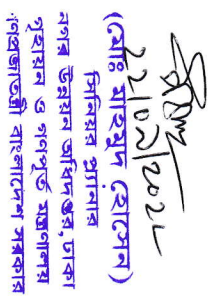 22/02/2022
(মোঃ মাহমুদ হোসেন)
সিনিয়র প্ল্যানার
নগর উন্নয়ন অধিদপ্তর, ঢাকা
গৃহায়ন ও গণপূর্ত মন্ত্রণালয়
গণপ্রজাতন্ত্রী বাংলাদেশ সরকার